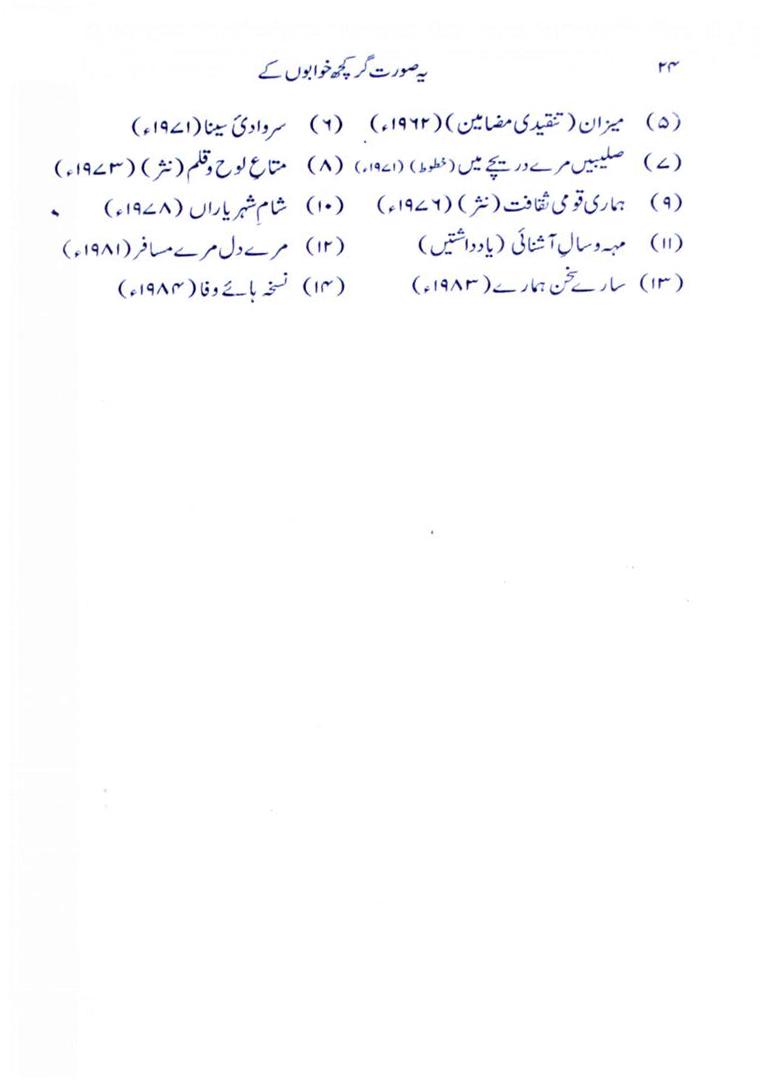 ۲۴ یہ صورت گر کچھ خوابوں کے
(۵) میزان (تنقیدی مضامین) (۱۹۶۲ء) (۶) سروادیٔ سینا (۱۹۷۱ء)
(۷) صلیبیں مرے دریچے میں (خطوط) (۱۹۷۱ء) (۸) متاعِ لوح و قلم (نثر) (۱۹۷۳ء)
(۹) ہماری قومی ثقافت (نثر) (۱۹۷۶ء) (۱۰) شامِ شہر یاراں (۱۹۷۸ء)
(۱۱) مہہ و سالِ آشنائی (یادداشتیں) (۱۲) مرے دل مرے مسافر (۱۹۸۱ء)
(۱۳) سارے سخن ہمارے (۱۹۸۳ء) (۱۴) نسخہ ہائے وفا (۱۹۸۴ء)